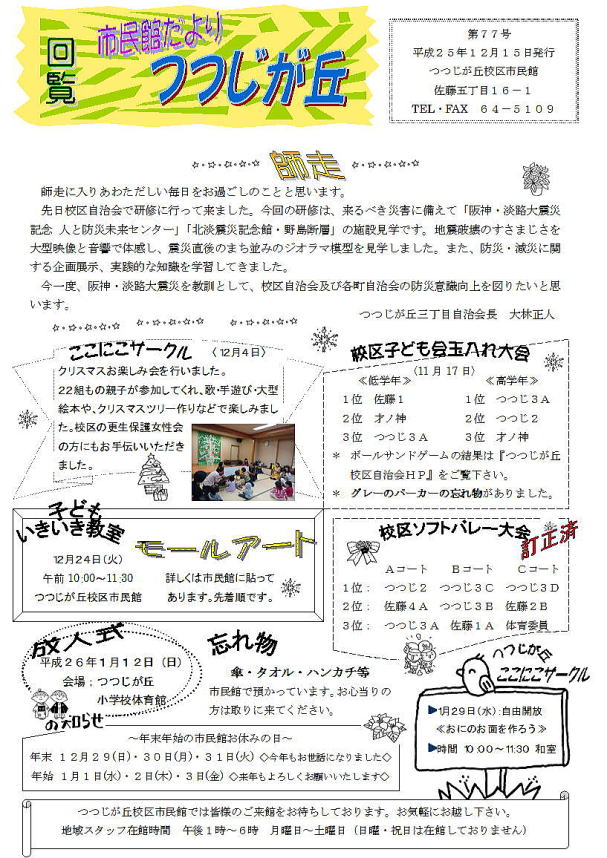 回覧
市民館だより
つつじが丘
第77号
平成25年12月15日発行
つつじが丘校区市民館
佐藤五丁目16－1
TEL・FAX 64－5109
☆・☆・☆・☆・☆ 師走 ☆・☆・☆・☆・☆
師走に入りあわただしい毎日をお過ごしのことと思います。
先日校区自治会で研修に行って来ました。今回の研修は、来るべき災害に備えて「阪神・淡路大震災
記念 人と防災未来センター」「北淡震災記念館・野島断層」の施設見学です。地震破壊のすさまじさを
大型映像と音響で体感し、震災直後のまち並みのジオラマ模型を見学しました。また、防災・減災に関
する企画展示、実践的な知識を学習してきました。
今一度、阪神・淡路大震災を教訓として、校区自治会及び各町自治会の防災意識向上を図りたいと思
います。
つつじが丘三丁目自治会長 大林正人
☆・☆・☆・☆・☆ ☆・☆・☆・☆・☆ ☆・☆・☆・☆・☆
ここにこサークル （12月4日）
クリスマスお楽しみ会を行いました。
22組もの親子が参加してくれ、歌・手遊び・大型
絵本や、クリスマスツリー作りなどで楽しみまし
た。校区の更生保護女性会
の方にもお手伝いいただき
ました。
校区子ども会玉入れ大会
（11月17日）
≪低学年≫ ≪高学年≫
1位 佐藤1 1位 つつじ3A
2位 才ノ神 2位 つつじ2
3位 つつじ3A 3位 才ノ神
＊ ボールサンドゲームの結果は『つつじが丘
校区自治会HP』をご覧下さい。
＊ グレーのパーカーの忘れ物がありました。
子ども
いきいき教室
モールアート
12月24日(火)
午前 10:00～11:30 詳しくは市民館に貼って
つつじが丘校区市民館 あります。先着順です。
校区ソフトバレー大会 訂正済
Aコート Bコート Cコート
1位： つつじ2 つつじ3C つつじ3D
2位： 佐藤4A つつじ3B 佐藤2B
3位： つつじ3A 佐藤1A 体育委員
成人式
平成26年1月12日（日）
会場：つつじが丘
小学校体育館
忘れ物
傘・タオル・ハンカチ等
市民館で預かっています。お心当りの
方は取りに来てください。
つつじが丘
ここにこサークル
▶1月29日(水):自由開放
≪おにのお面を作ろう≫
▶時間 10:00～11:30 和室
お知らせ
～年末年始の市民館お休みの日～
年末 12月29(日)・30日(月)・31日(火) ◇今年もお世話になりました◇
年始 1月1日(水)・2日(木)・3日(金) ◇来年もよろしくお願いいたします◇
つつじが丘校区市民館では皆様のご来館をお待ちしております。お気軽にお越し下さい。
地域スタッフ在館時間 午後1時～6時 月曜日～土曜日（日曜・祝日は在館しておりません）